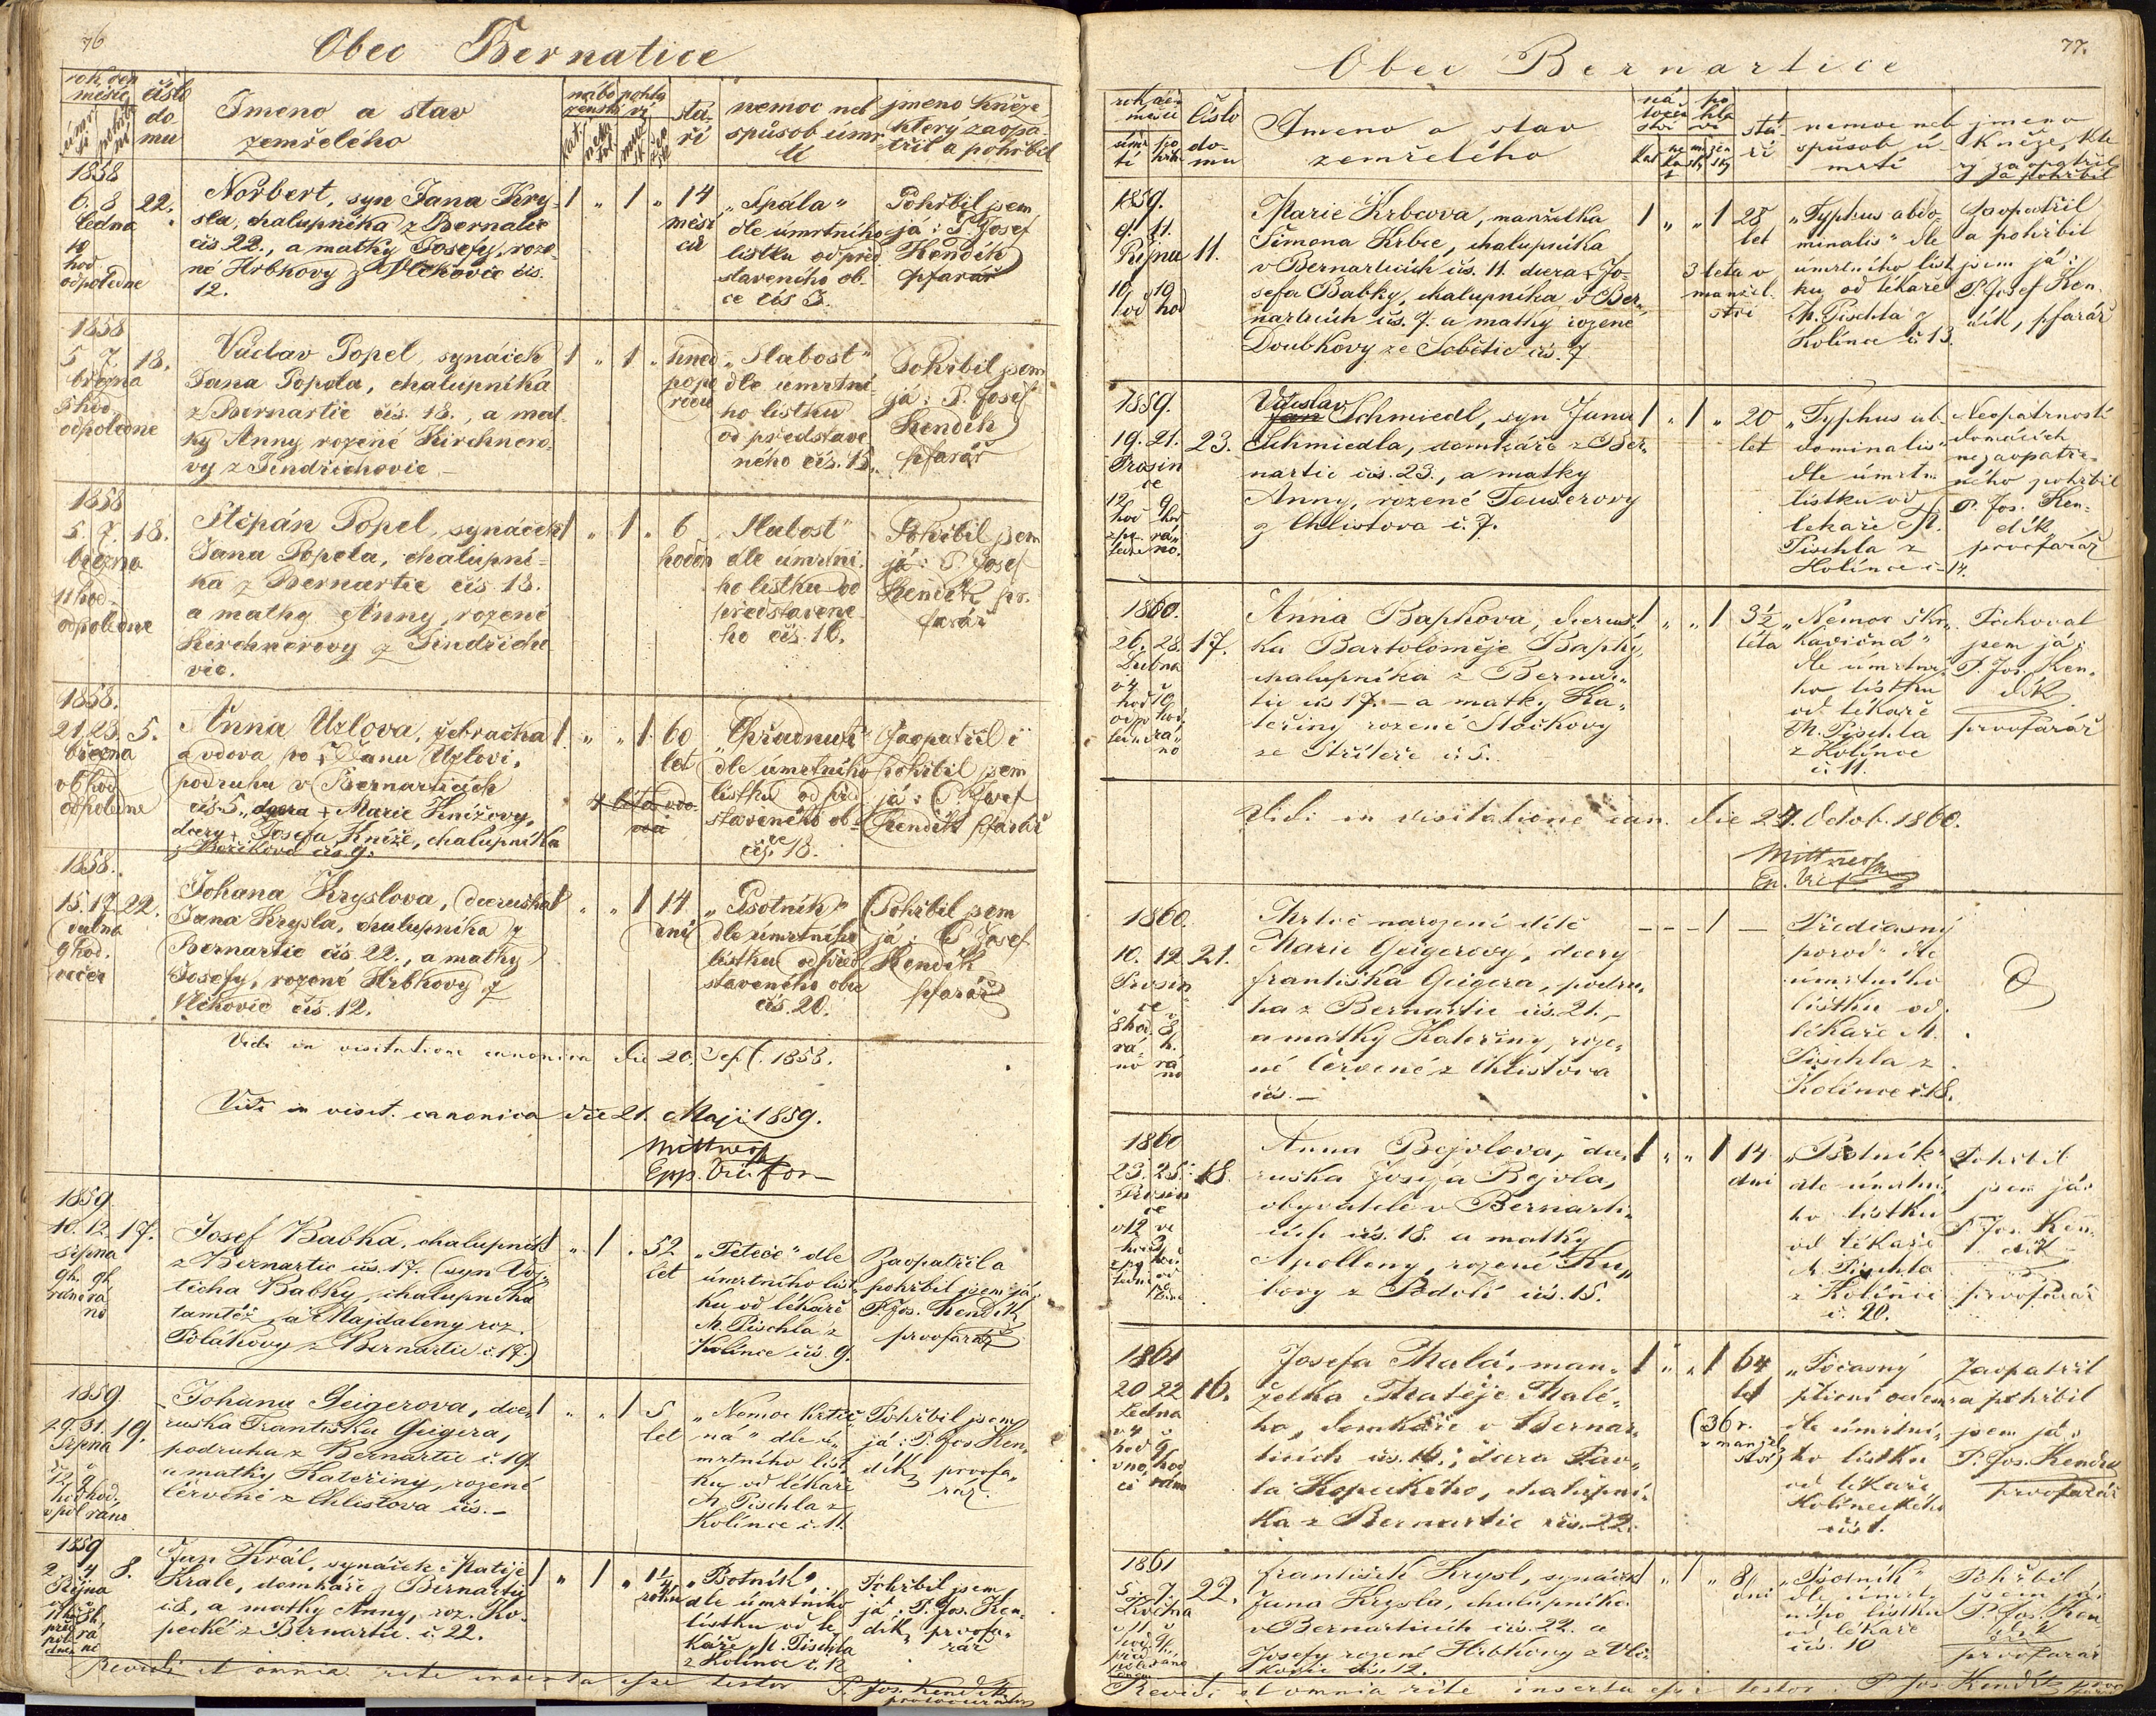 76
Obec Bernatice
rok, den
měsíc
úmrtí
pohřbu
číslo
domu
Jmeno a stav
zemřelého
nábožemství
pohlaví
kat.
stáří
nemoc neb
spůsob úmrtí
jmeno Kněze,
který zaopatřil
a pohřbil
1858
6. 8.
ledna
10
hod
odpoledne
22.
Norbert, syn Jana Kry-
sla, chalupníka z Bernatic
čís 22., a matky Josefy, roze-
né Hrbkovy z Vlčkovic čís.
12.
1 „ 1 „
14
měsí
ců
„Spála"
dle úmrtního
lístku od před
staveného ob-
ce čís 3.
Pohřbil jsem
já: P. Josef
Kendík
pfarář
1858
5. 7.
března
odpoledne
18.
Václav Popel, synáček
Jana Popela, chalupníka
z Bernartic čís. 18., a mat-
ky Anny rozené Kirchnero-
vy z Jindřichovic –
1 „ 1 „
hned
popo
rodu
„Slabost"
dle úmrtní-
ho lístku
od představe-
ného čís. 15.
Pohřbil jsem
já: P. Josef
Kendík
pfarář
1858
5. 7.
března
11 hod-
odpoledne
18.
Štěpán Popel, synáček
Jana Popela, chalupní-
ka z Bernartic čís 18.
a matky Anny, rozené
Kirchnerovy z Jindřicho
vic.
1 „ 1 „
6
hodin
„Slabost"
dle úmrtní-
ho lístku od
představené-
ho čís. 16.
Pohřbil jsem
já: P. Josef
Kendík
farář
1858.
21. 23.
března
odpoledne
5.
Anna Uzlova, žebračka
a vdova po † Janu Uzlovi,
podruhu v Bernarticích
čís. 5., dcera † Marie Knížovy,
dcery † Josefa Kníže, chalupníka
z Boříkova čís. 9.
1 „ „ 1
60
let
„Chřadnutí"
dle úmrtního
lístku od před
staveného ob-
ce čís. 18.
Zaopatřil i
pohřbil jsem
já: P. Josef
Kendík pfarář
1858.
15. 17.
dubna
9 hod.
večer
22.
Johana Kryslova, dceruška
Jana Krysla, chalupníka z
Bernartic čís. 22., a matky
Josefy, rozené Hrbkovy z
Vlčkovic čís. 12.
1 „ „ 1
14
dní
„Psotník"
dle úmrtního
lístku od před
staveného obce
čís. 20.
Pohřbil jsem
já: P. Josef
Kendík
pfarář
Vidi in visitatione canonica die 20. Sept. 1858.
Vidi in visit. canonica die 21. Maji 1859.
1859
10. 12.
srpna
17.
Josef Babka, chalupník
z Bernartic čís. 17. (syn Voj-
těcha Babky, chalupníka
tamtéž, a Majdaleny roz.
Polákovy z Bernartic č. 17.)
1 „ 1 „
52
let
dle
úmrtního líst-
ku od lékaře
M. Pischla z
Kolínce čís. 9.
Zaopatřil a
pohřbil jsem já:
P. Jos. Kendík
prvofarář
1859
29. 31.
srpna
19.
Johana Geigerova, dce-
ruska Františka Geigera,
podruha z Bernartic č. 19.
a matky Kateřiny, rozené
Červené z Chlistova čís. –
1 „ „ 1
5
let
„Nemoc krtič
ná" dle ú-
mrtního líst
ku od lékaře
M. Pischla z
Kolínce č. 11.
Pohřbil jsem
já: P. Jos Ken-
dík, prvofa-
rář.
1859
2. 4.
Října
8.
Jan Král, synáček Matěje
Krale, domkáře z Bernartic
č. 8., a matky Anny, roz. Ko-
pecké z Bernartic. č. 22.
1 „ 1 „
roku
„Psotník"
dle úmrtního
lístku od lé
kaře M. Pischla
z Kolince č. 12
Pohřbil jsem
já: P. Jos. Ken-
dík, prvofa-
rář
Revidi et omnia rite inserta esse testor P. Jos. Kendík
77.
Obec Bernartice
rok, den
měsíc
úmrtí
pohřb
číslo
domu
Jmeno a stav
zemřelého
stáří
nemoc neb
spůsob ú-
mrtí
jmeno
Kněze, kte
rý zaopatřil
a pohřbil
1859.
9. 11.
Října
10 10
hod hod
11.
Marie Krbcova, manželka
Šimona Krbce, chalupníka
v Bernarticích čís. 11. dcera † Jo-
sefa Babky, chalupníka v Ber-
narticích čís. 7. a matky rozené
Doubkovy ze Sobětic čís. 7
1 „ „ 1
28
let
3 leta v
manžel-
ství
„Typhus abdo-
minalis" dle
úmrtního líst
ku od lékaře
M. Pischla z
Kolínce č. 13.
Zaopatřil
a pohřbil
jsem já:
P. Josef Ken-
dík, pfarář
1859.
19. 21.
Prosin
ce
23.
Václav
Jan Schmiedl, syn Jana
Schmiedla, domkáře z Ber-
nartic čís. 23., a matky
Anny, rozené Tauserovy
z Chlistova č. 7.
1 „ 1 „
20
let
„Typhus ab-
dominalis"
dle úmrtn.
lístku od
lékaře M.
Pischla z
Kolínce č. 14.
Neopatrností
domácích
nezaopatře-
ného pohřbil
P. Jos. Ken-
dík
prvofarář
1860.
26. 28.
Dubna
17.
Anna Bapkova, dceruš-
ka Bartoloměje Bapky,
chalupníka z Bernar-
tic čís 17. – a matky Ka-
teřiny rozené Stočkovy
ze Střítěře č. 5.
1 „ „ 1
3½
léta
„Nemoc škr-
kavičná"
dle úmrtní-
ho lístku
od lékaře
M. Pischla
z Kolínce
č. 11.
Pochoval
jsem já:
P. Jos. Ken-
dík
prvofarář
Vidi in visitatione can. die 24. Octob. 1860.
1860.
10. 12
Prosin-
ce
21.
Mrtvě narozené dítě
Marie Geigerovy, dcery
Františka Geigera, podru-
ha z Bernartic čís. 21. –
a matky Kateřiny, roze-
né Červené z Chlistova
čís. –
– – – 1 –
Předčasný
porod" dle
úmrtního
lístku od
lékaře M.
Pischla z
Kolínce č. 18.
1860
23. 25.
Prosin
ce
18.
Anna Bejvlova, dce-
ruška Josefa Bejvla,
obyvatele v Bernarti-
cích čís. 18. a matky
Apolleny, rozené Ku-
bovy z Podolí čís. 15.
1 „ „ 1
14
dní
„Psotník"
dle úmrtní-
ho lístku
od lékaře
M. Pischla
z Kolínce
č. 20.
Pohřbil
jsem já:
P. Jos. Ken-
dík
prvofarář
1861
20 22
Ledna
16.
Josefa Malá, man-
želka Matěje Malé-
ho, domkáře v Bernar-
ticích čís. 16.; dcera Pav-
la Kopeckého, chalupní-
ka z Bernartic čís. 22.
1 „ „ 1
64
let
(36 r.
v manžel
ství)
dle úmrtní-
ho lístku
od lékaře
Kolíneckého
čís 1.
Zaopatřil
a pohřbil
jsem já:
P. Jos. Kendík
prvofarář
1861
5. 7.
Května
22.
František Krysl, synáček
Jana Krysla, chalupníka
v Bernarticích čís. 22. a
Josefy rozené Hrbkovy z Vlč-
kovic čís. 12.
1 „ 1 „
8
dní
„Psotník"
dle úmrt-
ního lístku
od lékaře
čís. 10
Pohřbil
jsem já:
P. Jos. Ken-
dík
prvofarář
Revidi et omnia rite inserta esse testor: P. Jos Kendík